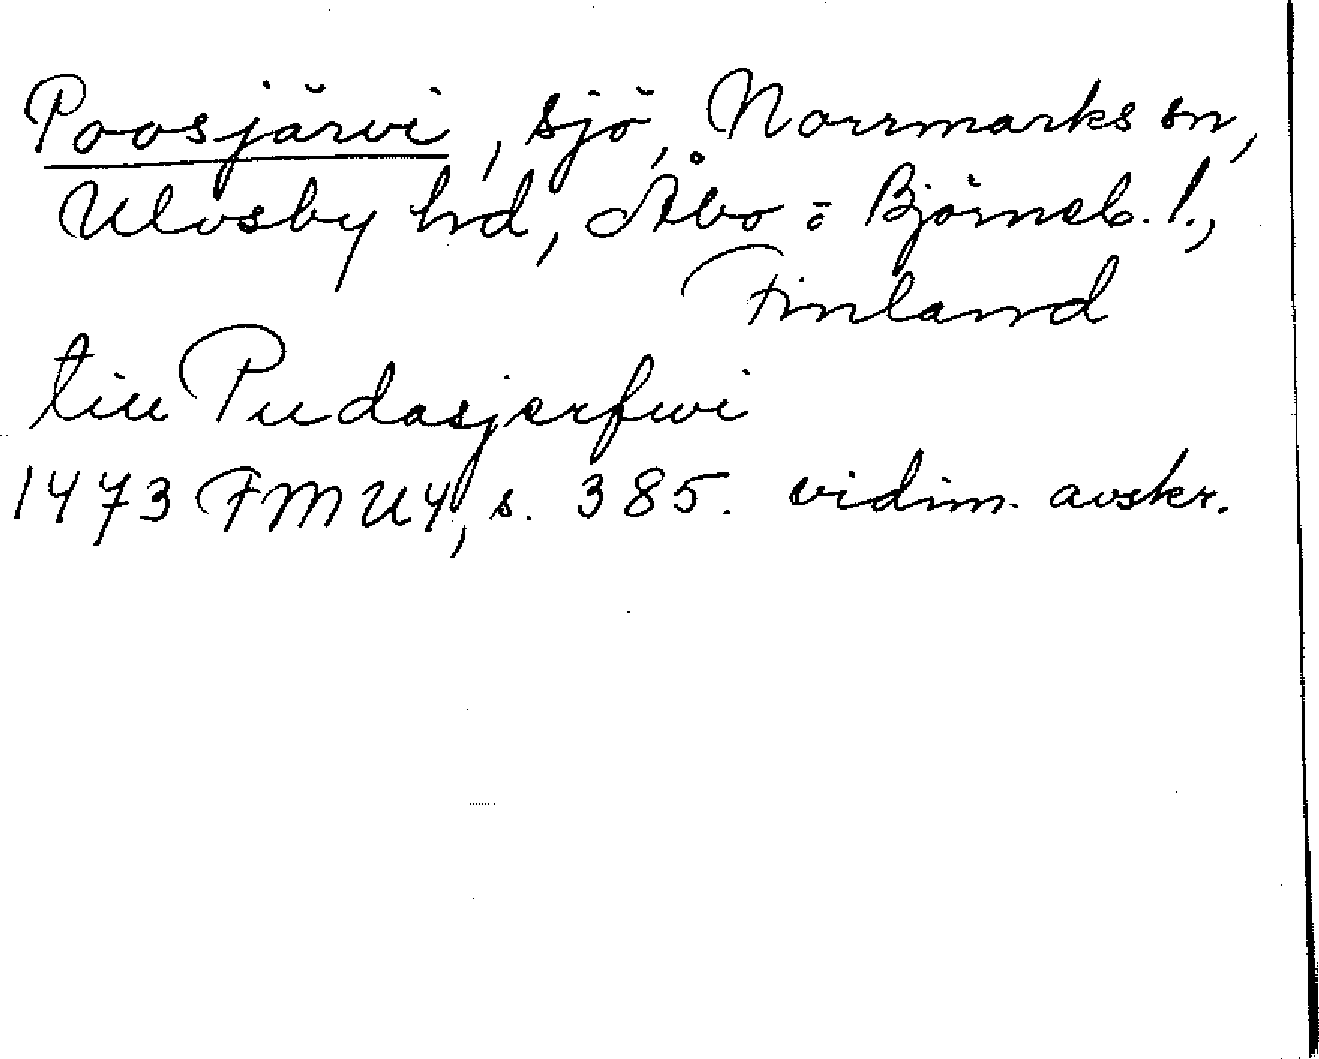 Poosjärvi, sjö, Norrmarks sn,
Ulvsby hd, Åbo o Björneb. l.,
Finland
till Pudasjerfwi
1473 FMU4, s. 385. vidim. avskr.